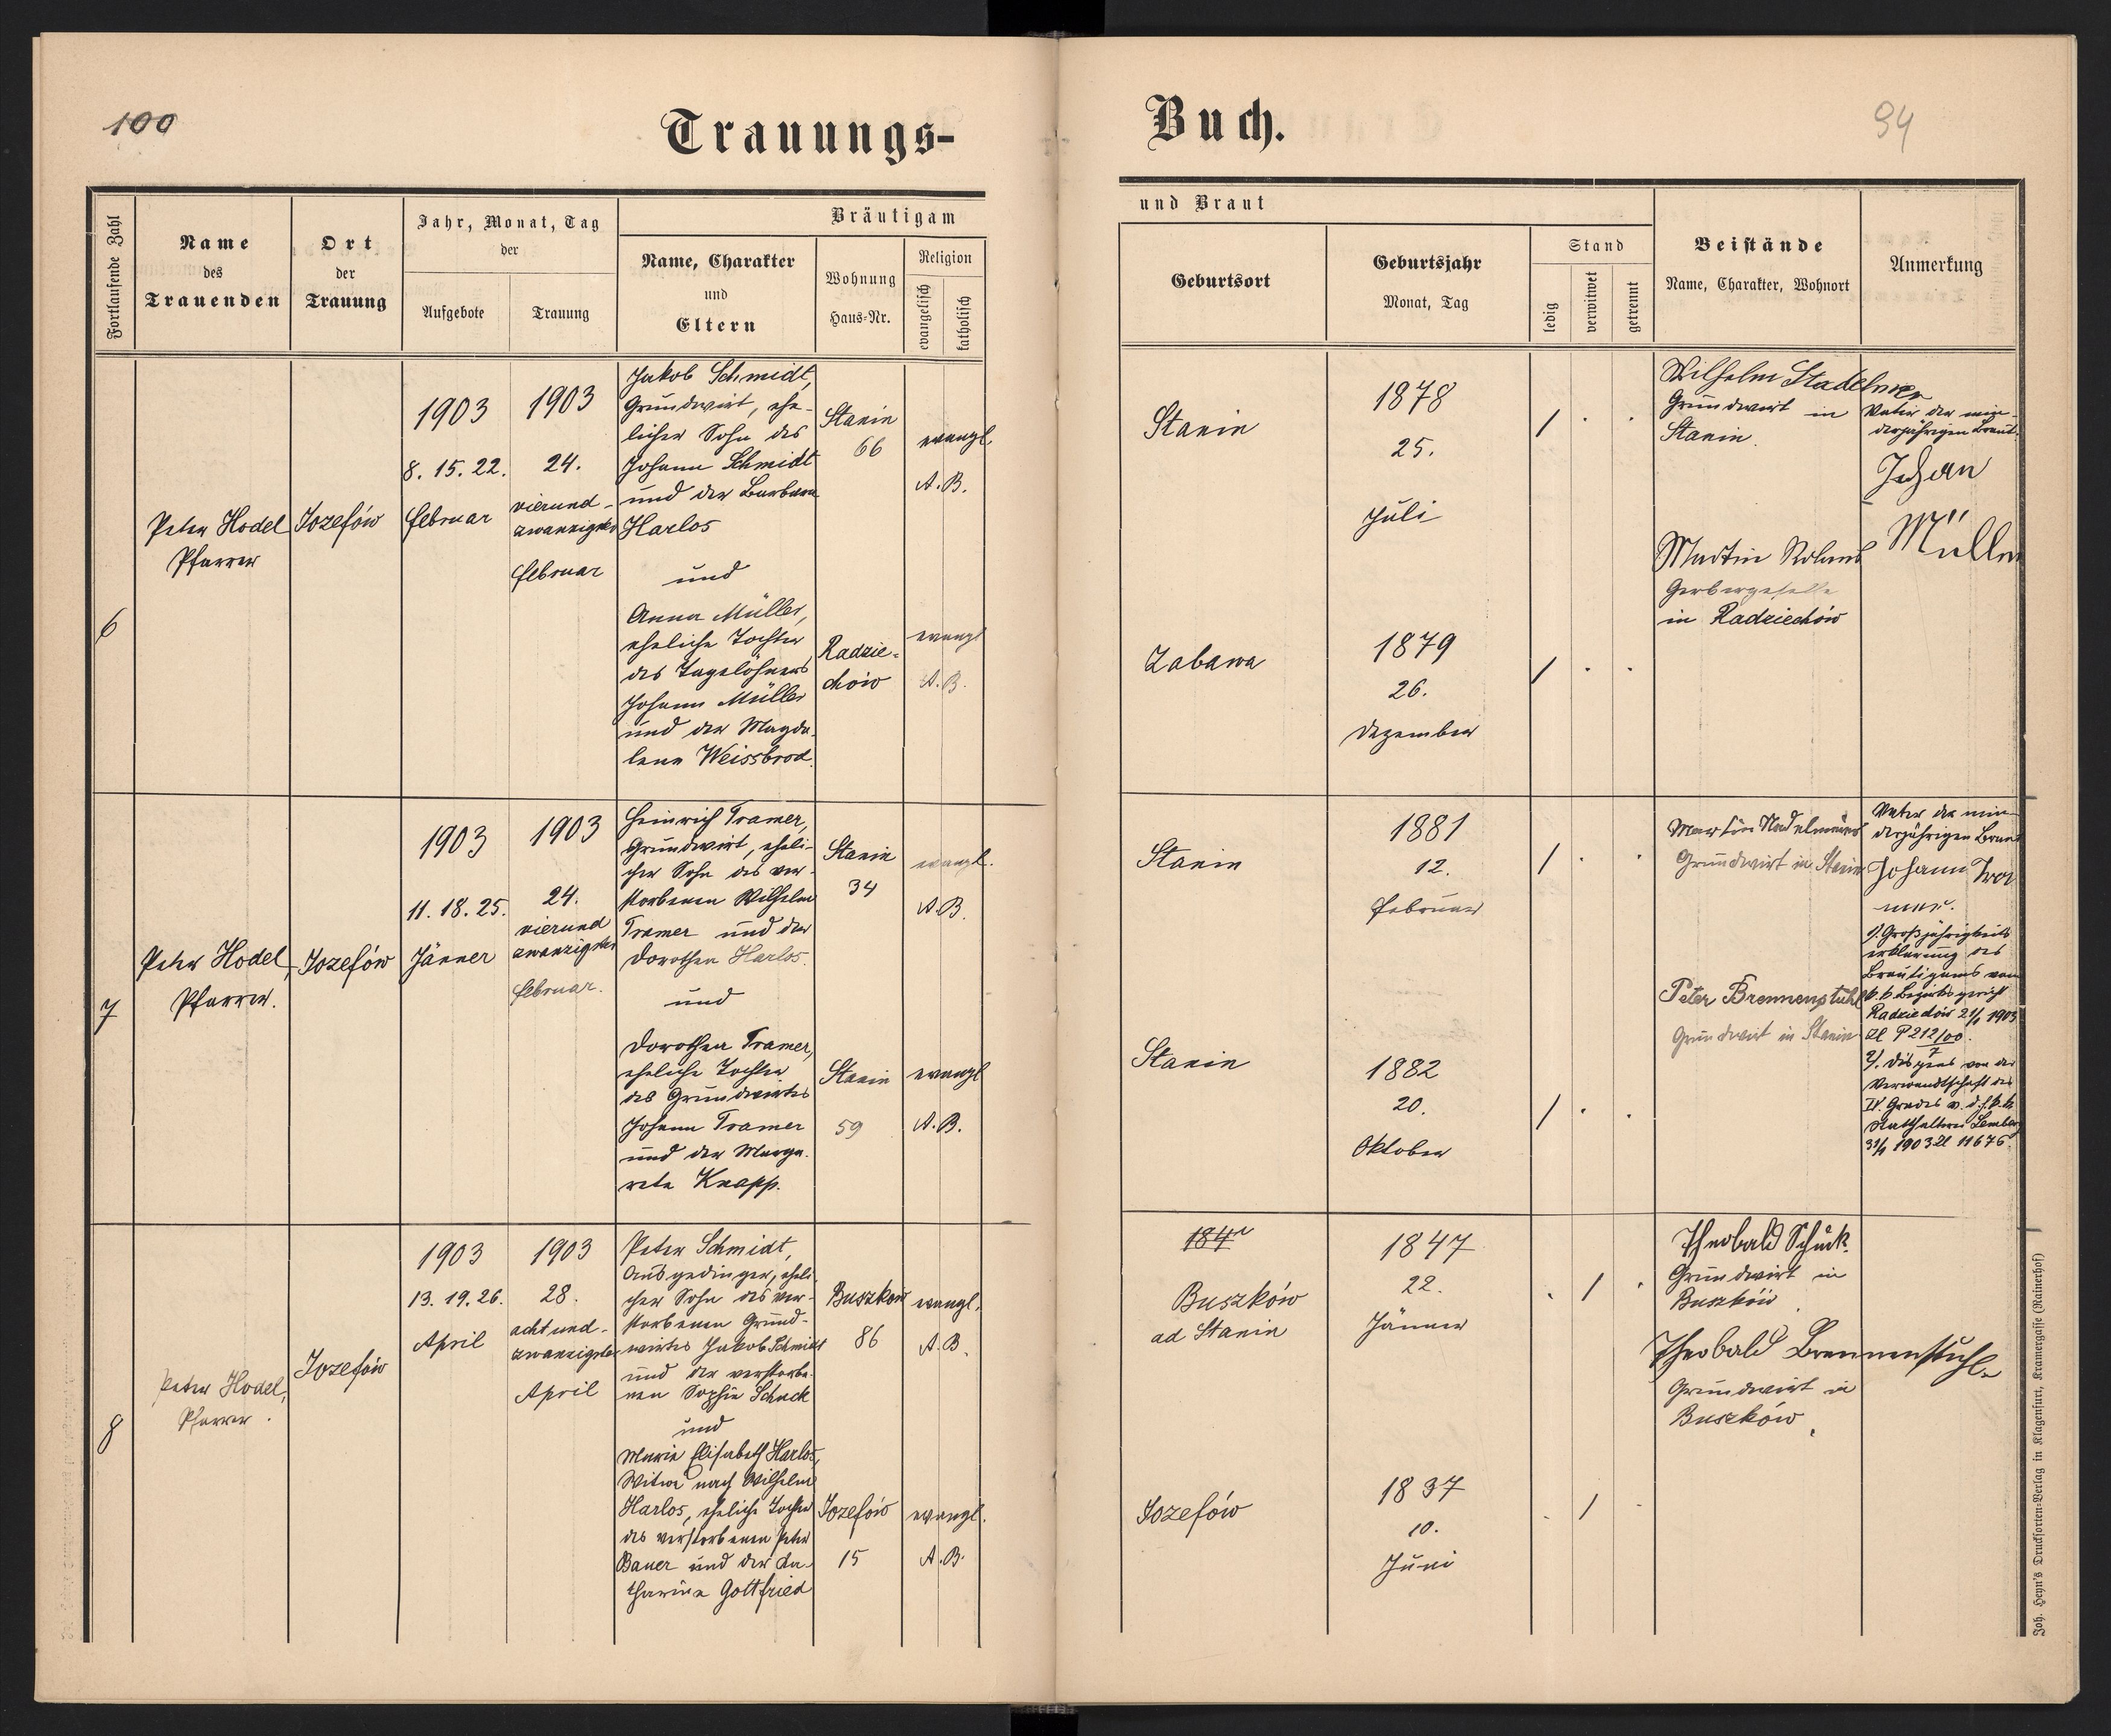 100
Trauungs-
Buch.
94
Fortlaufende Zahl
Name
des
Trauenden
Ort
der
Trauung
Jahr, Monat, Tag
der
Aufgebote
Trauung
Bräutigam
Name, Charakter
und
Eltern
Wohnung
Haus-Nr.
Religion
evangelisch
katholisch
und Braut
Geburtsort
Geburtsjahr
Monat, Tag
Stand
ledig
verwitwet
getrennt
Beistände
Name, Charakter, Wohnort
Anmerkung
6
Peter Hodel
Pfarrer
Jozefów
1903
8. 15. 22.
Februar
1903
24.
vierund-
zwanzigster
Februar
Jakob Schmidt,
Grundwirt, ehe-
licher Sohn des
Johann Schmidt
und der Barbara
Harlos
und
Anna Müller,
eheliche Tochter
des Tagelöhners
Johann Müller
und der Magda-
lena Weissbrod.
Stanin
66
evangl.
A. B.
Radzie-
chów
evangl
A. B.
Stanin
1878
25.
Juli
/ . .
Zabawa
1879
26.
Dezember
/ . .
Wilhelm Stadelmeyer
Grundwirt in
Stanin.
Martin Roland
Gerbergeselle
in Radziechów
Vater der min-
derjährigen Braut.
Johan
Müller
7
Peter Hodel,
Pfarrer.
Jozefów
1903
11. 18. 25.
Jänner
1903
24.
vierund
zwanzigster
Februar.
Heinrich Tramer,
Grundwirt, eheli-
cher Sohn des ver-
storbenen Wilhelm
Tramer und der
Dorothea Harlos.
und
Dorothea Tramer,
eheliche Tochter
des Grundwirtes
Johann Tramer
und der Marga-
reta Knapp.
Stanin
34
evangl.
A. B.
Stanin
59
evangl
A. B.
Stanin
1881
12.
Februar
/ . .
Stanin
1882
20.
Oktober
/ . .
Martin
Grundwirt in Stanin
Peter Brennenstuhl
Grundwirt in Stanin
Vater der min-
derjährigen Braut
Johann Tra
mer.
1/. Großjährigkeits
erklärung des
Bräutigams vom
k. k. Bezirksgericht
Radziechów 21/1 1903
Zl P 212/00
7
2/. Dispens von der
Verwandtschaft des
IV. Grades v. d. h. k. k.
Statthalterei Lemberg
31/1 1903 Zl 11676.
8
Peter Hodel,
Pfarrer.
Jozefów
1903
13. 19. 26.
April
1903
28.
achtund-
zwanzigster
April
Peter Schmidt,
Ausgedinger, eheli-
cher Sohn des ver-
storbenen Grund-
wirtes Jakob Schmidt
und der verstorbe-
nen Sophie Schuck
und
Maria Elisabeth Harlos,
Witwe nach Wilhelm
Harlos, eheliche Tochter
des verstorbenen Peter
Bauer und der Ka-
tharina Gottfried
Buszków
86
evangl.
A. B.
Jozefów
15
evangl.
A. B.
Buszków
ad Stanin
1847
22.
Jänner
. / .
Jozefów
1837
10.
Juni
. / .
Theobald Schuck.
Grundwirt in
Buszków.
Theobald Brennenstuhl
Grundwirt in
Buszków.
Joh. Heyn's Drucksorten-Verlag in Klagenfurt, Kramergasse (Rainerhof)